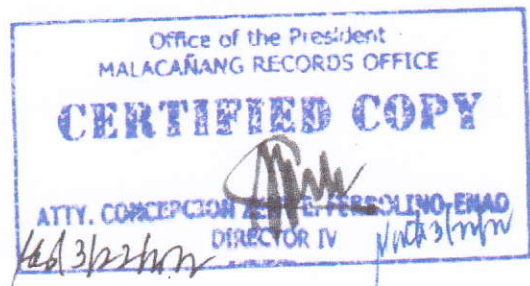 Office of the President
MALACAÑANG RECORDS OFFICE
CERTIFIED COPY
ATTY. CONCEPCION FERROLINO-ENAD
DIRECTOR IV